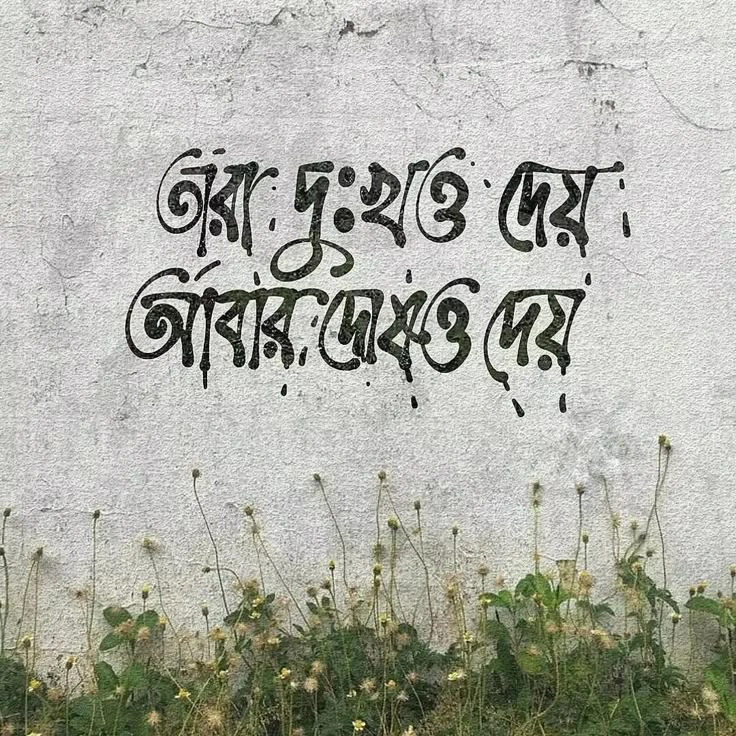 তারা দুঃখও দেয়
আবার দোষও দেয়